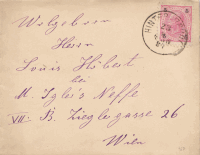 Wolgeboren
Herrn
Louis Höbert
bei
M. Igló's Neffe
VII. B. Zieglergasse 26
Wien